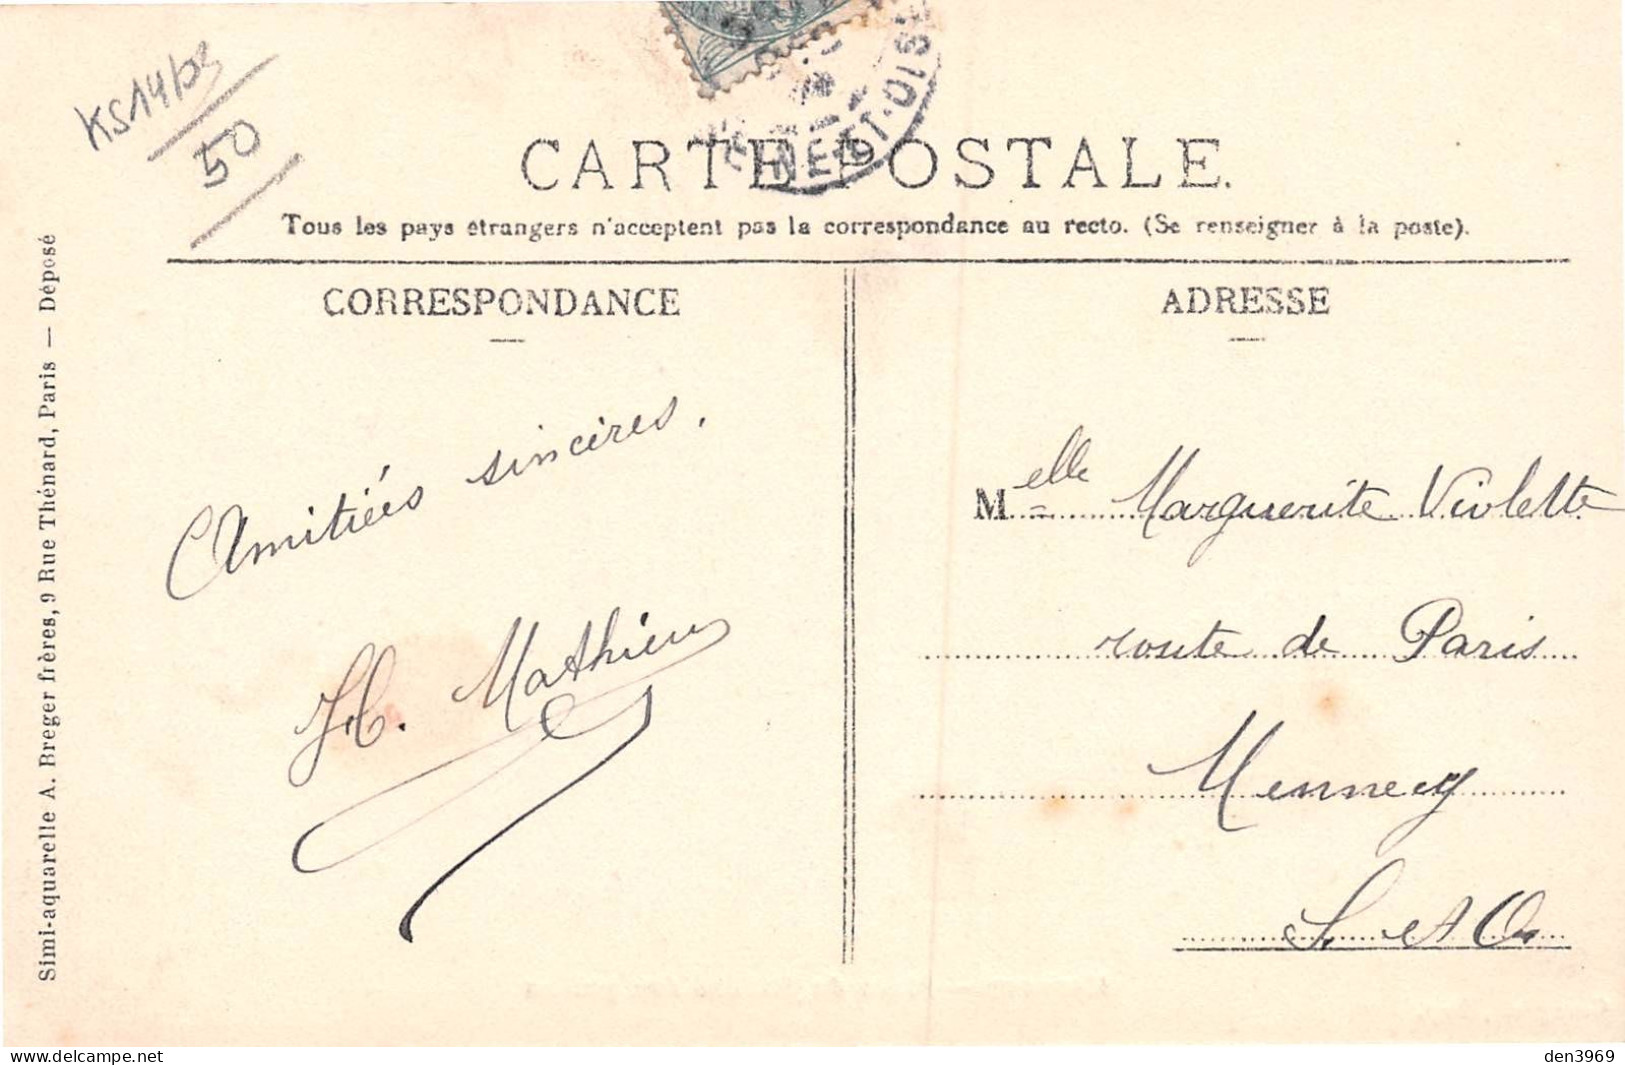 KS14/b3
50
NE-ET-OISE
CARTE POSTALE.
Tous les pays étrangers n'acceptent pas la correspondance au recto. (Se renseigner à la poste).
CORRESPONDANCE
Amitiées sincères.
H. Mathieu
ADRESSE
Melle Marguerite Violette
route de Paris
Mennecy
S. et O.
Simi-aquarelle A. Breger frères, 9 Rue Thénard, Paris — Déposé
www.delcampe.net
den3969